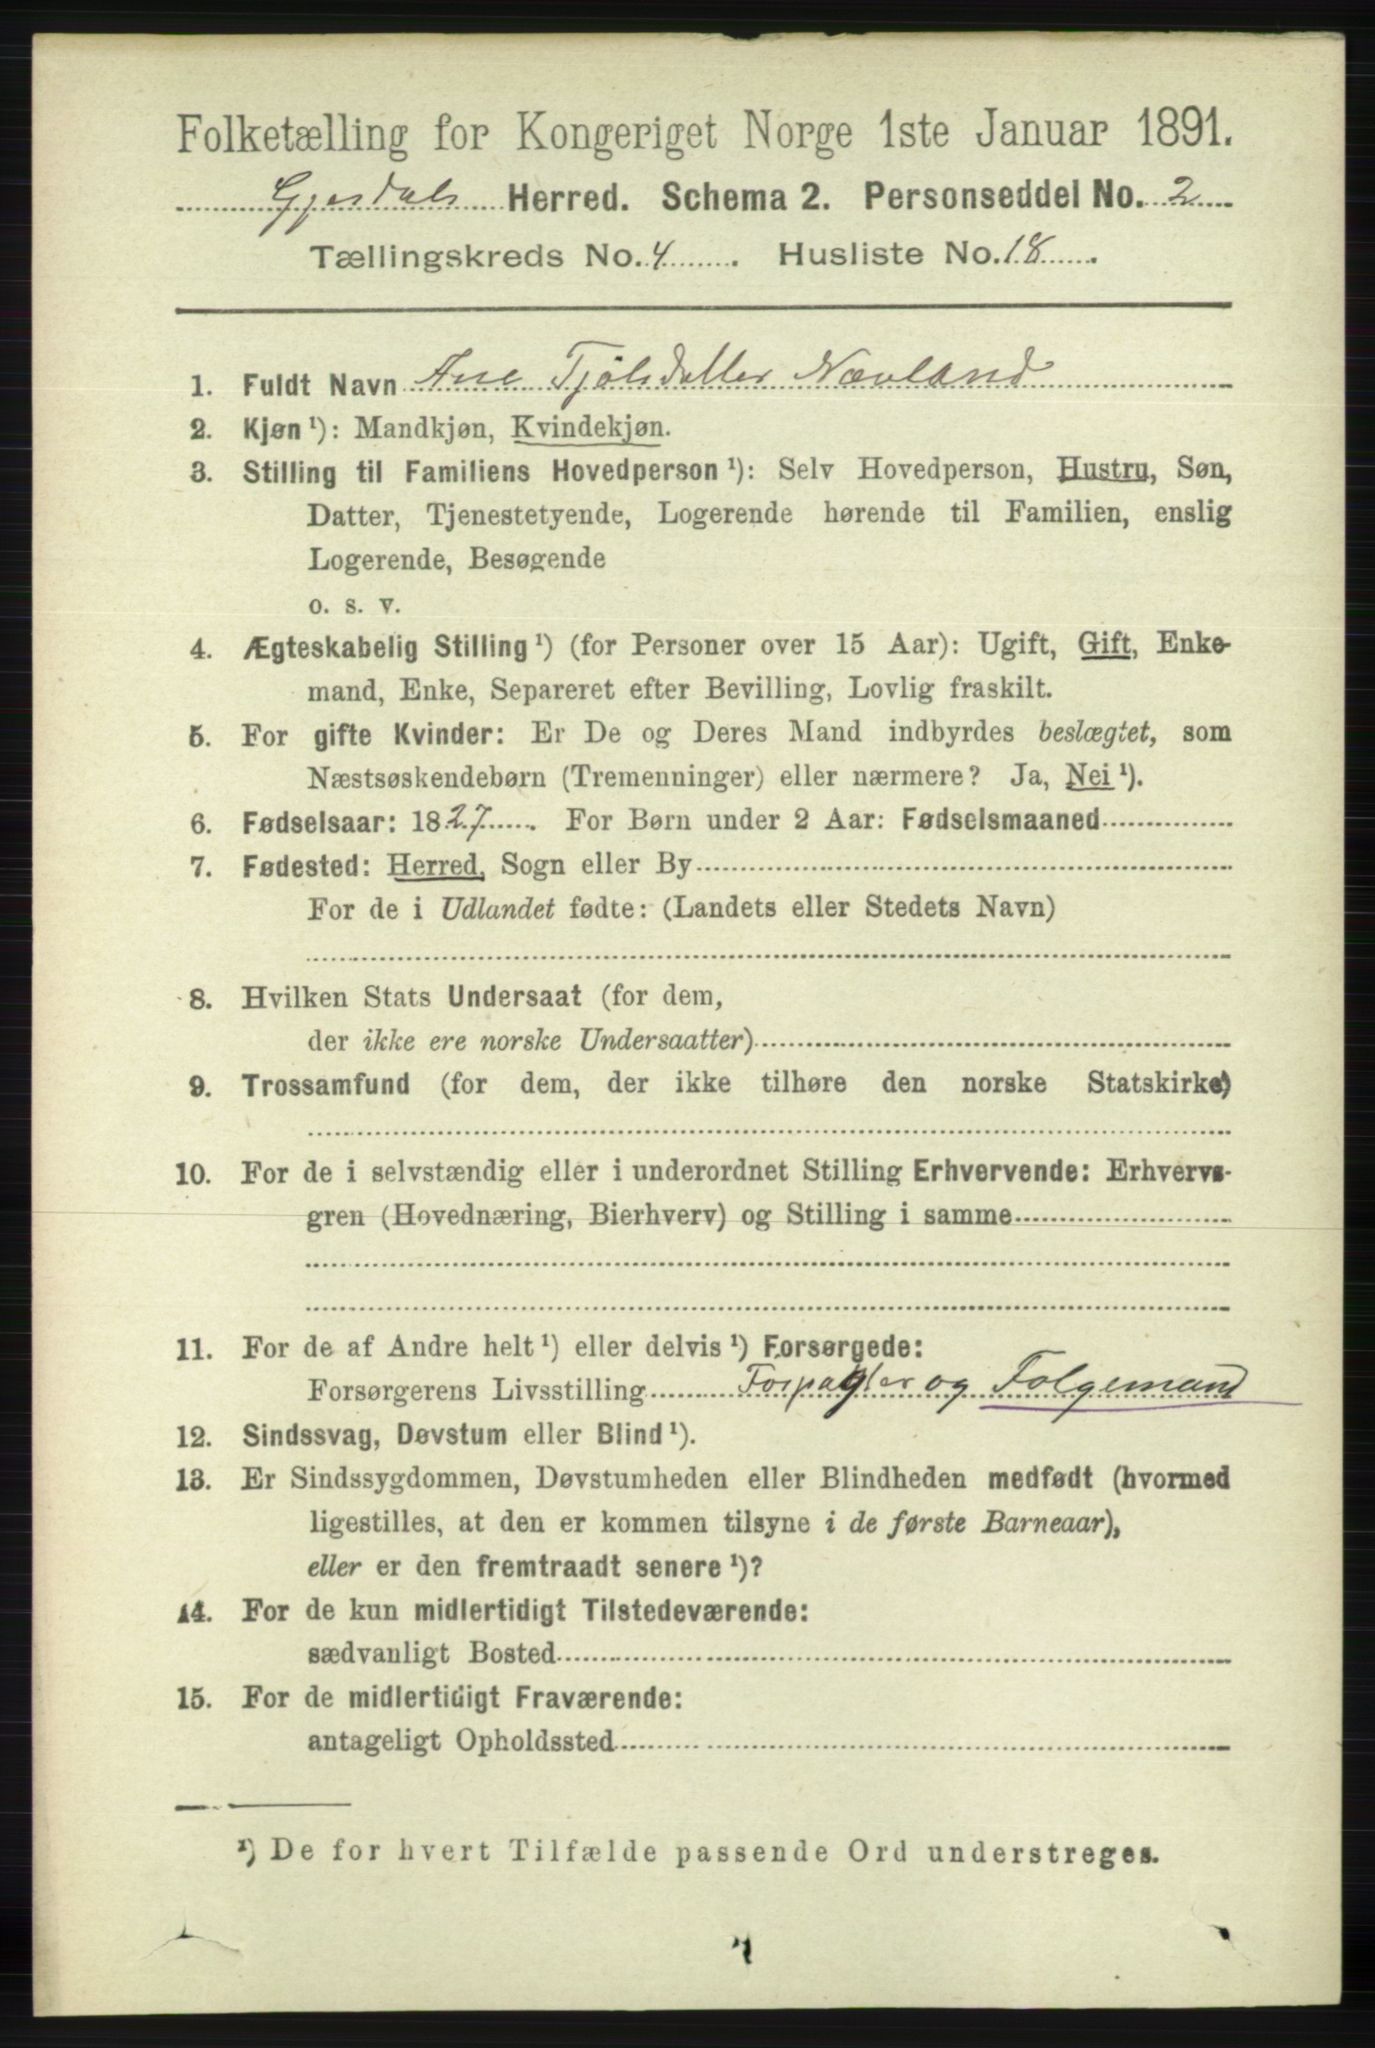 Folketælling for Kongeriget Norge 1ste Januar 1891.
Gjesdals Herred. Schema 2. Personseddel No. 2
Tællingskreds No. 4. Husliste No. 18.
1. Fuldt Navn Ane Tjölsdatter Nævland
2. Kjøn ¹): Mandkjøn, Kvindekjøn.
3. Stilling til Familiens Hovedperson ¹): Selv Hovedperson, Hustru, Søn,
Datter, Tjenestetyende, Logerende hørende til Familien, enslig
Logerende, Besøgende
o. s. v.
4. Ægteskabelig Stilling ¹) (for Personer over 15 Aar): Ugift, Gift, Enke-
mand, Enke, Separeret efter Bevilling, Lovlig fraskilt.
5. For gifte Kvinder: Er De og Deres Mand indbyrdes beslægtet, som
Næstsøskendebørn (Tremenninger) eller nærmere? Ja, Nei ¹).
6. Fødselsaar: 1827. For Børn under 2 Aar: Fødselsmaaned
7. Fødested: Herred, Sogn eller By
For de i Udlandet fødte: (Landets eller Stedets Navn)
8. Hvilken Stats Undersaat (for dem,
der ikke ere norske Undersaatter)
9. Trossamfund (for dem, der ikke tilhøre den norske Statskirke)
10. For de i selvstændig eller i underordnet Stilling Erhvervende: Erhvervs-
gren (Hovednæring, Bierhverv) og Stilling i samme
11. For de af Andre helt ¹) eller delvis ¹) Forsørgede:
Forsørgerens Livsstilling Forpagter og Folgemand
12. Sindssvag, Døvstum eller Blind ¹).
13. Er Sindssygdommen, Døvstumheden eller Blindheden medfødt (hvormed
ligestilles, at den er kommen tilsyne i de første Barneaar),
eller er den fremtraadt senere ¹)?
14. For de kun midlertidigt Tilstedeværende:
sædvanligt Bosted
15. For de midlertidigt Fraværende:
antageligt Opholdssted
¹) De for hvert Tilfælde passende Ord understreges.